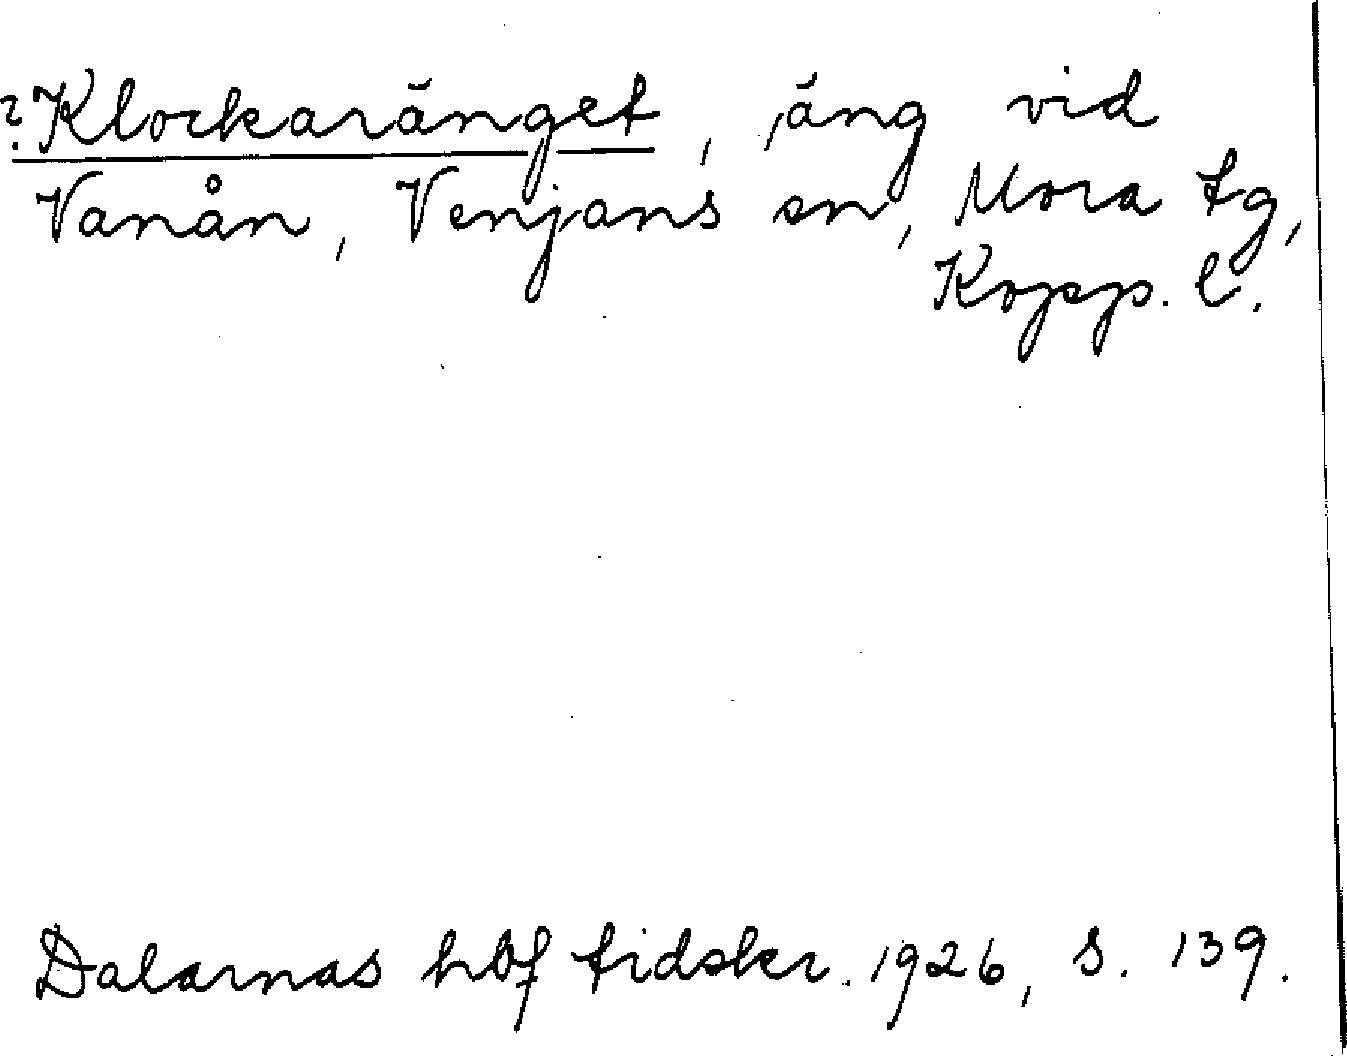 ?Klockaränget, äng vid
Vanån, Venjans sn, Mora tg,
Kopp. l.
Dalarnas hbf tidskr. 1926, s. 139.